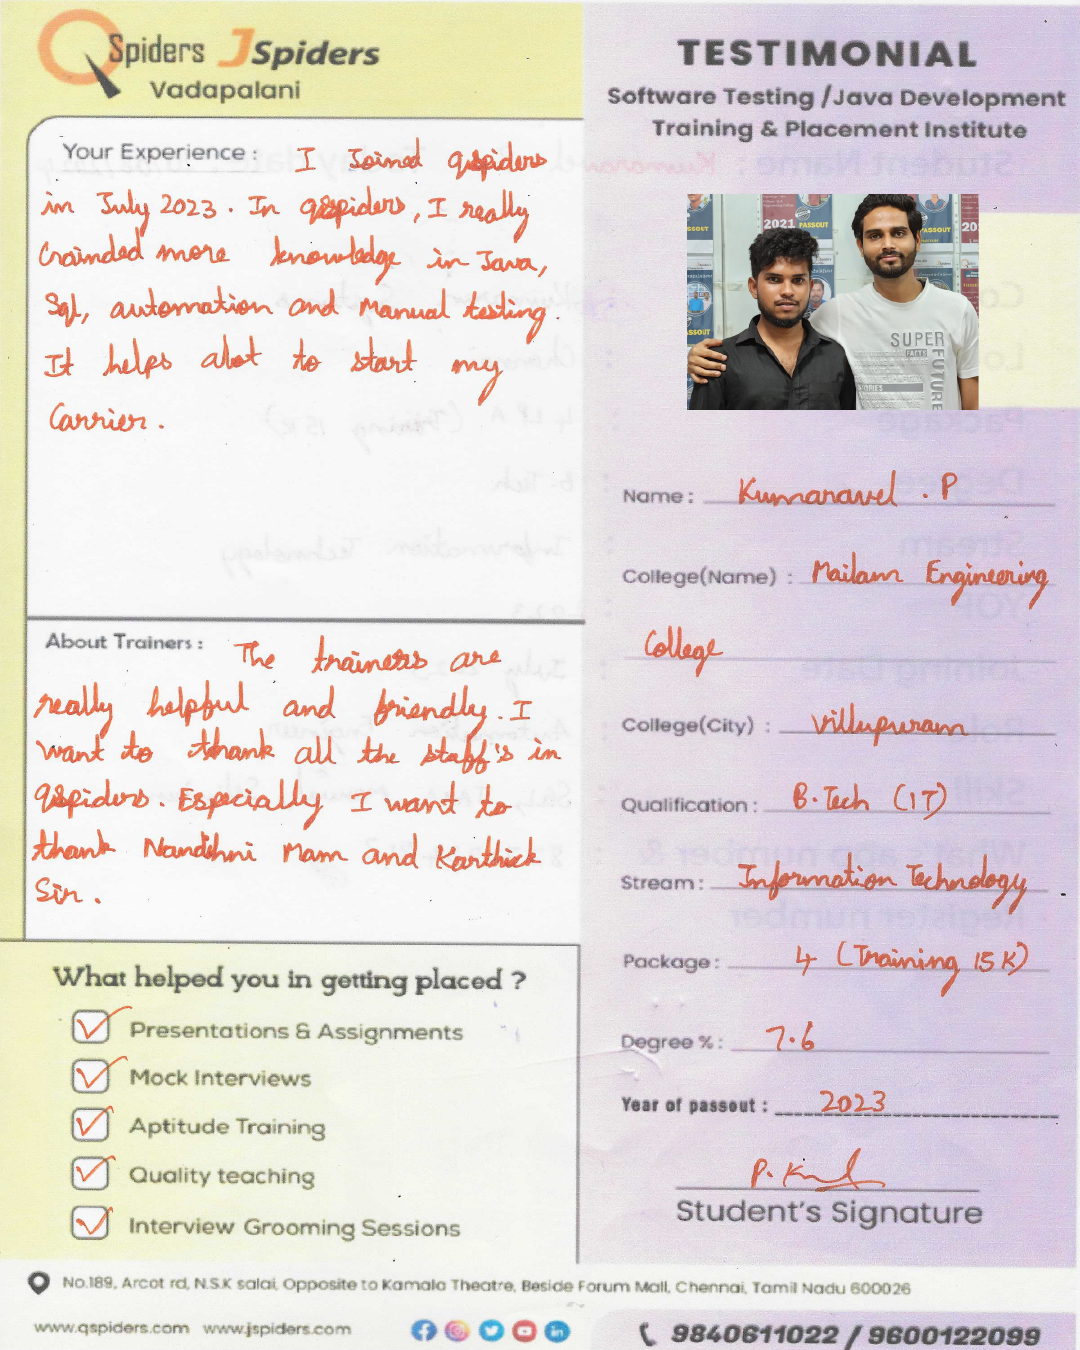 QSpiders JSpiders
Vadapalani
TESTIMONIAL
Software Testing /Java Development
Training & Placement Institute
Your Experience : I Joined qspiders
in July 2023. In qspiders, I really
Crainded more knowledge in Java,
Sql, automation and Manual testing.
It helps alot to start my
Carrier.
2021
PASSOUT
SUPER
FACTS
FUTURE
STORIES
Name : Kumaravel . P
College(Name) : Mailam Engineering
College
College(City) : Villupuram
Qualification : B.Tech (IT)
Stream : Information Technology
Package : 4 (Training 15K)
Degree % : 7.6
Year of passout : 2023
P. K
Student's Signature
About Trainers : The trainers are
really helpful and friendly. I
want to thank all the staff's in
qspiders. Especially I want to
thank Nandhni Mam and Karthick
Sir.
What helped you in getting placed ?
Presentations & Assignments
Mock Interviews
Aptitude Training
Quality teaching
Interview Grooming Sessions
No.189, Arcot rd, N.S.K salai, Opposite to Kamala Theatre, Beside Forum Mall, Chennai, Tamil Nadu 600026
www.qspiders.com www.jspiders.com
9840611022 / 9600122099